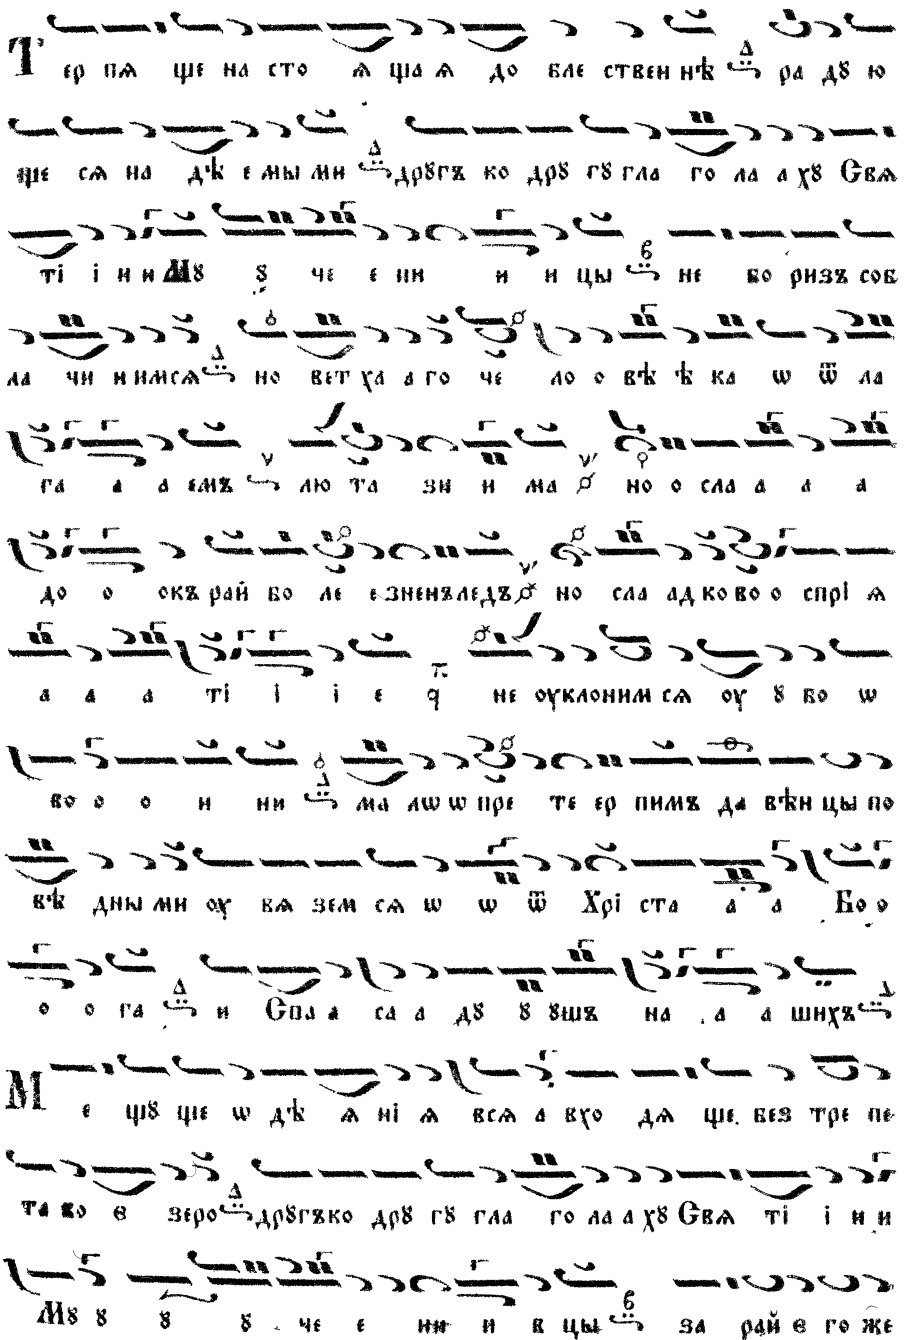 Тер пѧ ще на сто ѧ щаѧ до бле ствен нѣ ра дꙋ ю
ще сѧ на дѣ е мы ми дрꙋгъ ко дрꙋ гꙋ гла го ла а хꙋ Свѧ
ті і и и Мꙋ ꙋ че е ни и и цы не бо ризъ соб
ла чи и имсѧ но вет ха а го че ло о вѣ ѣ ка ѡ ѿ ла
га а а емъ лю та зи и ма но о сла а а а
до о окъ рай бо ле е зненъ ледъ но сла ад ко во о спрі ѧ
а а а ті і і е не оуклоним сѧ оу ꙋ бо ѡ
во о о и ни ма лѡ ѡ пре те ер пимъ да вѣн цы по
вѣ дны ми оу вѧ зем сѧ ѡ ѡ ѿ Хрі ста а а Бо о
о о га и Спа а са а дꙋ ꙋ ꙋшъ на а а шихъ
Ме щꙋ ще ѡ дѣ ѧ ні ѧ всѧ а вхо дѧ ще. без тре пе
та во є зеро дрꙋгъко дрꙋ гꙋ гла го ла а хꙋ Свѧ ті і и и
Мꙋ ꙋ ꙋ ꙋ че е ни и в цы за рай є го же